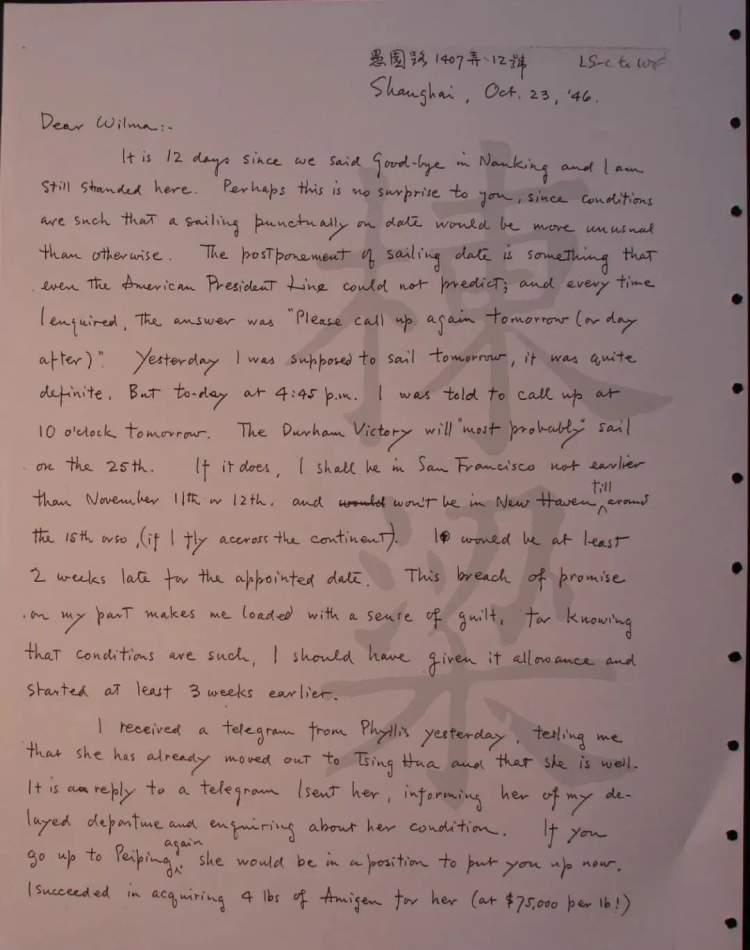 愚園路1407弄12號 LS-c to WF
Shanghai, Oct. 23, '46.
Dear Wilma:-
It is 12 days since we said Good-bye in Nanking and I am
still standed here. Perhaps this is no surprise to you, since conditions
are such that a sailing punctually on date would be more unusual
than otherwise. The postponement of sailing date is something that
even the American President Line could not predict; and every time
I enquired, the answer was "Please call up again tomorrow (or day
after)". Yesterday I was supposed to sail tomorrow, it was quite
definite. But to-day at 4:45 p.m. I was told to call up at
10 o'clock tomorrow. The Durham Victory will "most probably" sail
on the 25th. If it does, I shall be in San Francisco not earlier
than November 11th or 12th. and would won't be in New Haven till around
the 15th or so, (if I fly accross the continent). I would be at least
2 weeks late for the appointed date. This breach of promise
on my part makes me loaded with a sense of guilt, for knowing
that conditions are such, I should have given it allowance and
started at least 3 weeks earlier.
I received a telegram from Phyllis yesterday, telling me
that she has already moved out to Tsing Hua and that she is well.
It is a reply to a telegram I sent her, informing her of my de-
layed departure and enquiring about her condition. If you
go up to Peiping again, she would be in a position to put you up now.
I succeeded in acquiring 4 lbs of Amigen for her (at $75,000 per lb!)
棟
梁